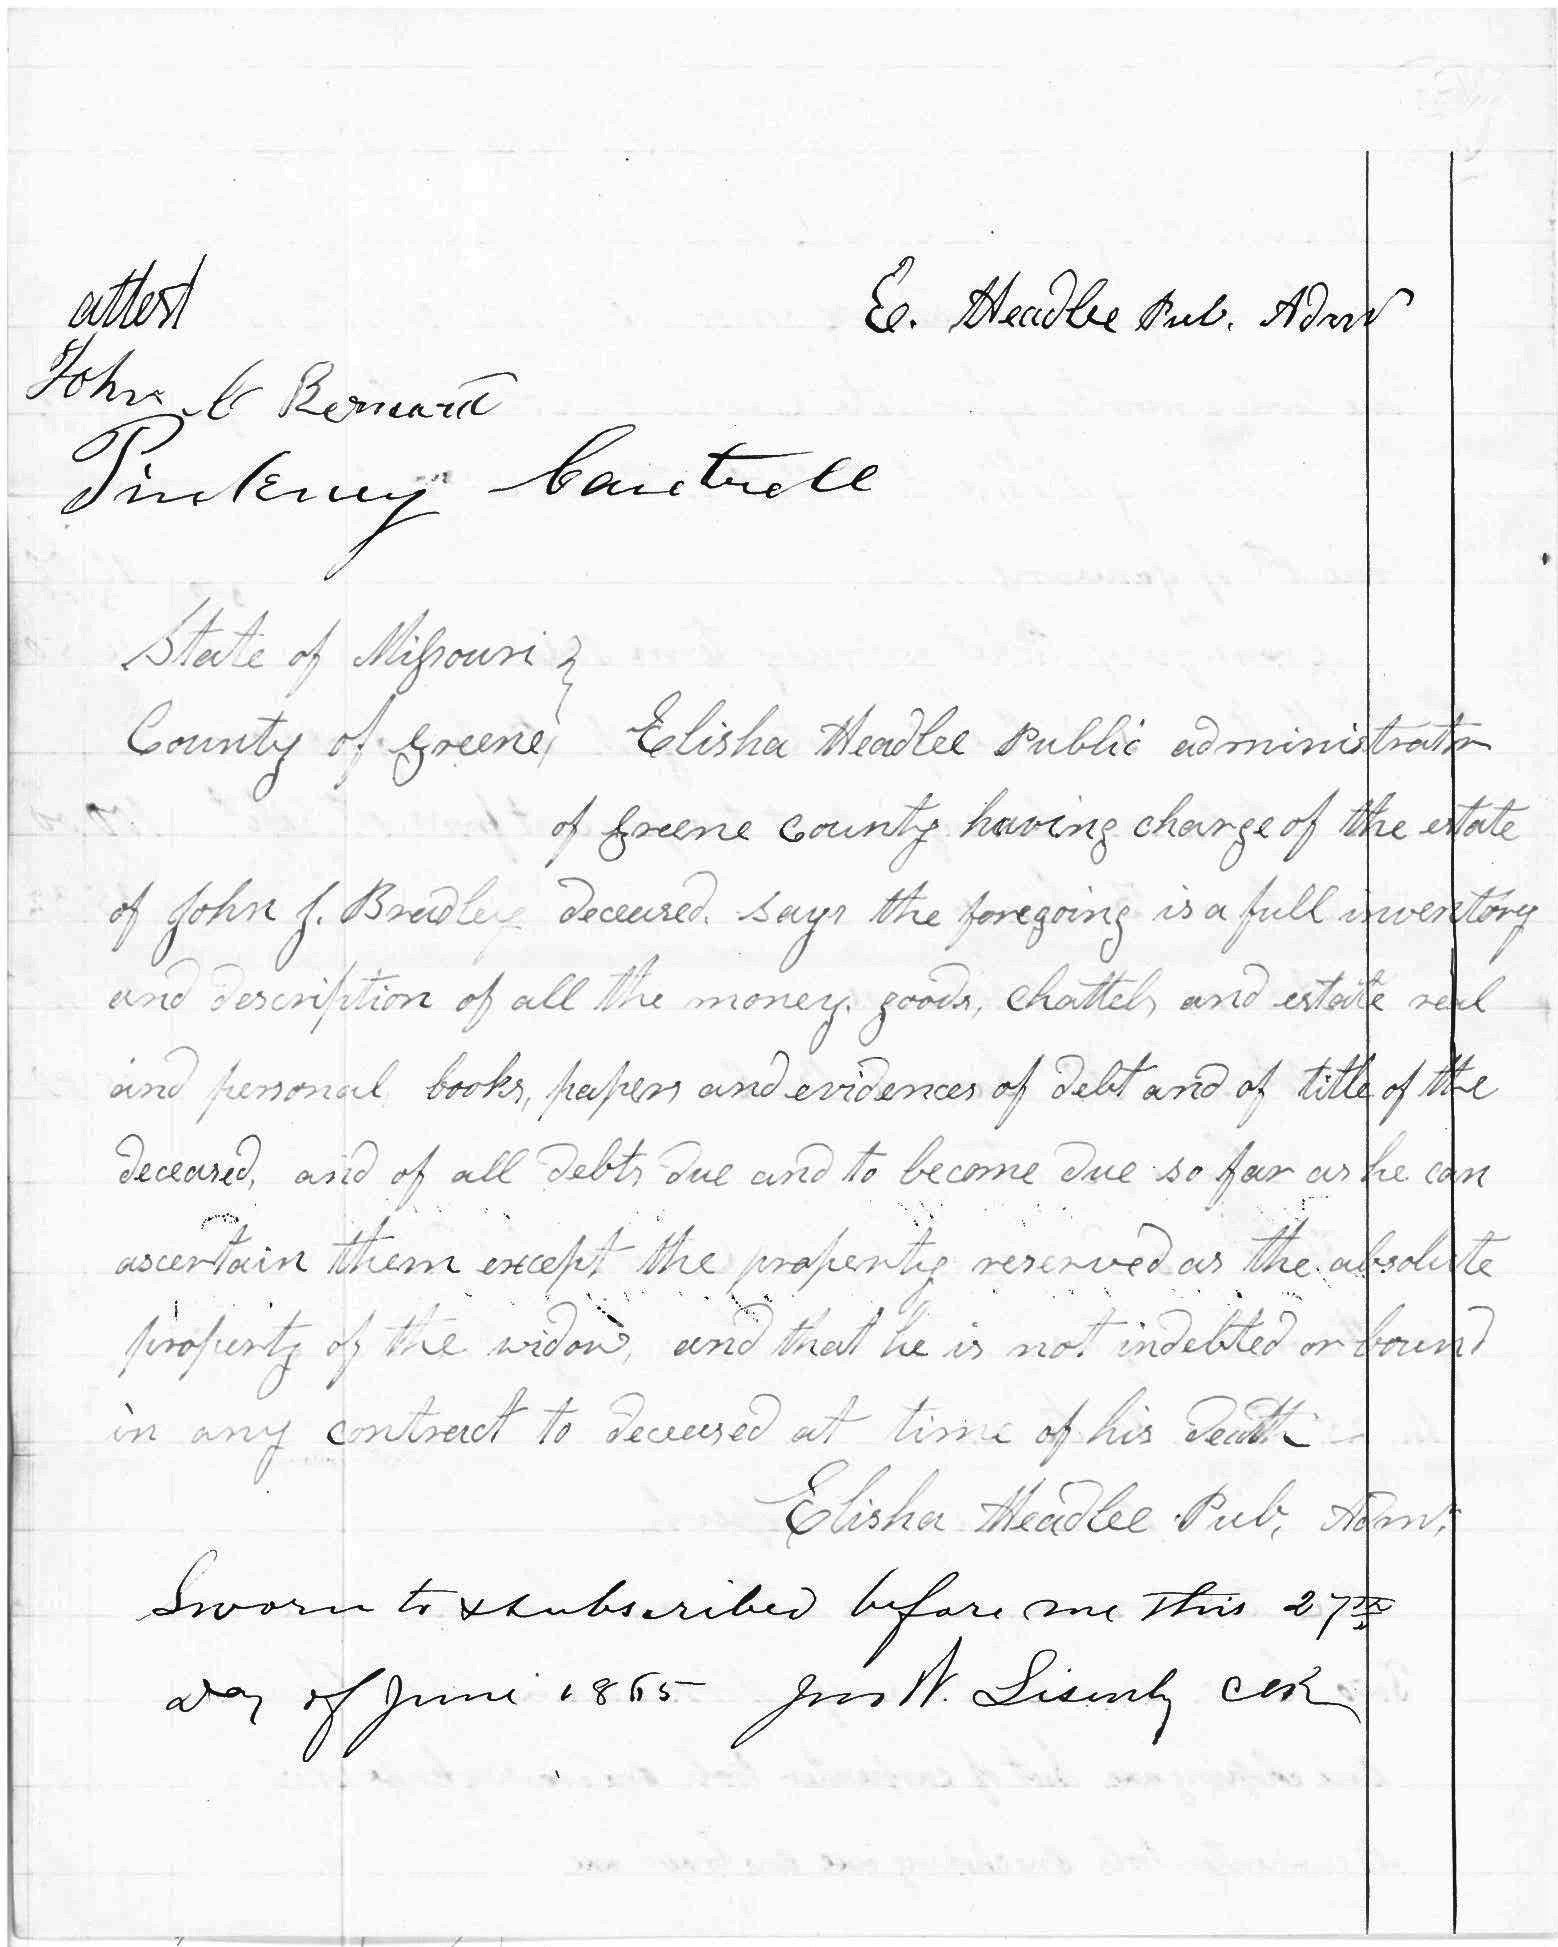 attest
E. Headlee Pub. Admr
John
Pinkney Cantrell
State of Missouri }
County of Greene } Elisha Headlee Public administrator
of Greene County having charge of the estate
of John J. Bradley deceased. says the foregoing is a full inventory
and description of all the money. goods, chattels and estate real
and personal books, papers and evidences of debt and of title of the
deceased, and of all debts due and to become due so far as he can
ascertain them except the property reserved as the absolute
property of the widow, and that he is not indebted or bound
in any contract to deceased at time of his death
Elisha Headlee Pub. Admr.
Sworn to & subscribed before me this 27th
day of June 1865 Jno W. Lisenby Clk